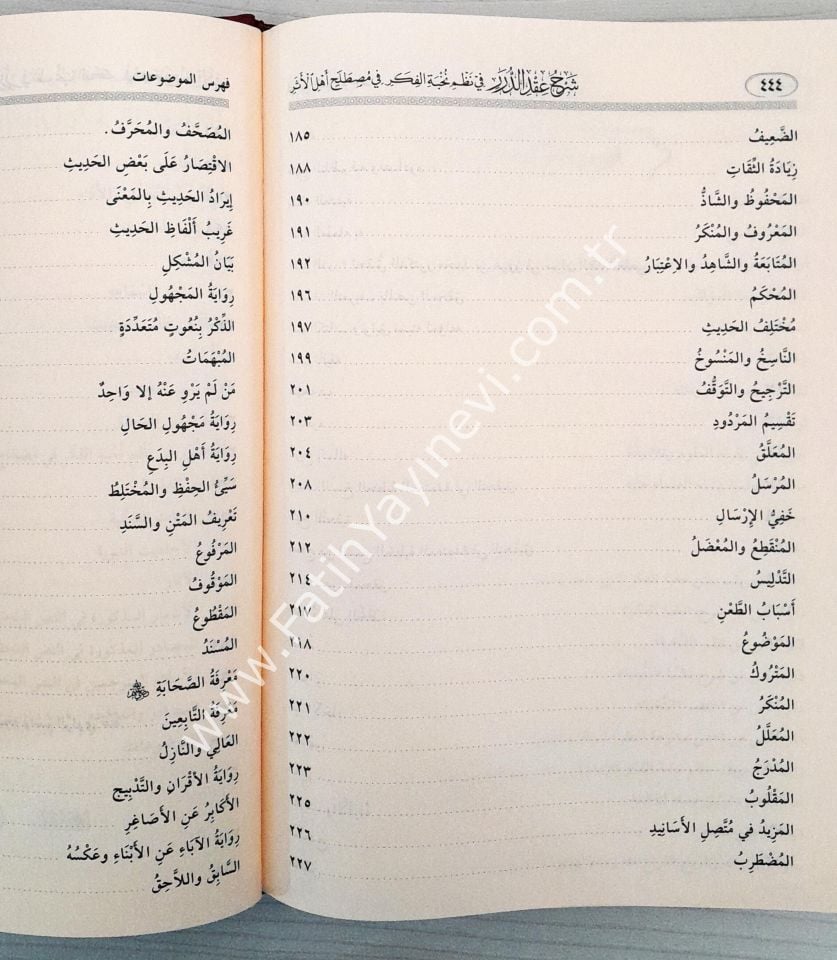 ٤٤٤ شَرْحُ عِقْدِ الدُّرَرِ فِي نَظْمِ نُخْبَةِ الفِكَرِ فِي مُصْطَلَحِ أَهْلِ الأَثَرِ
الضَّعِيفُ ١٨٥
زِيَادَةُ الثِّقَاتِ ١٨٨
المَحْفُوظُ والشَّاذُّ ١٩٠
المَعْرُوفُ والمُنْكَرُ ١٩١
المُتَابَعَةُ والشَّاهِدُ والِاعْتِبَارُ ١٩٢
المُحْكَمُ ١٩٦
مُخْتَلِفُ الحَدِيثِ ١٩٧
النَّاسِخُ والمَنْسُوخُ ١٩٩
التَّرْجِيحُ والتَّوَقُّفُ ٢٠١
تَقْسِيمُ المَرْدُودِ ٢٠٣
المُعَلَّقُ ٢٠٤
المُرْسَلُ ٢٠٨
خَفِيُّ الإِرْسَالِ ٢١٠
المُنْقَطِعُ والمُعْضَلُ ٢١٢
التَّدْلِيسُ ٢١٤
أَسْبَابُ الطَّعْنِ ٢١٧
المَوْضُوعُ ٢١٨
المَتْرُوكُ ٢٢٠
المُنْكَرُ ٢٢١
المُعَلَّلُ ٢٢٢
المُدْرَجُ ٢٢٣
المَقْلُوبُ ٢٢٥
المَزِيدُ في مُتَّصِلِ الأَسَانِيدِ ٢٢٦
المُضْطَرِبُ ٢٢٧
فهرس الموضوعات
المُصَحَّفُ والمُحَرَّفُ.
الاقْتِصَارُ عَلَى بَعْضِ الحَدِيثِ
إيرَادُ الحَدِيثِ بِالمَعْنَى
غَرِيبُ أَلْفَاظِ الحَدِيثِ
بَيَانُ المُشْكِلِ
رِوَايَةُ المَجْهُولِ
الذِّكْرُ بِنُعُوتٍ مُتَعَدِّدَةٍ
المُبْهَمَاتُ
مَنْ لَمْ يَرْوِ عَنْهُ إلا وَاحِدٌ
رِوَايَةُ مَجْهُولِ الحَالِ
رِوَايَةُ أَهْلِ البِدَعِ
سَيِّئُ الحِفْظِ والمُخْتَلِطُ
تَعْرِيفُ المَتْنِ والسَّنَدِ
المَرْفُوعُ
المَوْقُوفُ
المَقْطُوعُ
المُسْنَدُ
مَعْرِفَةُ الصَّحَابَةِ
مَعْرِفَةُ التَّابِعِينَ
العَالِي والنَّازِلُ
رِوَايَةُ الأَقْرَانِ والتَّدْبِيج
الأَكَابِرُ عَنِ الأَصَاغِرِ
رِوَايَةُ الآبَاءِ عَنِ الأَبْنَاءِ وعَكْسُهُ
السَّابِقُ واللاَّحِقُ
www.FatihYayinevi.com.tr